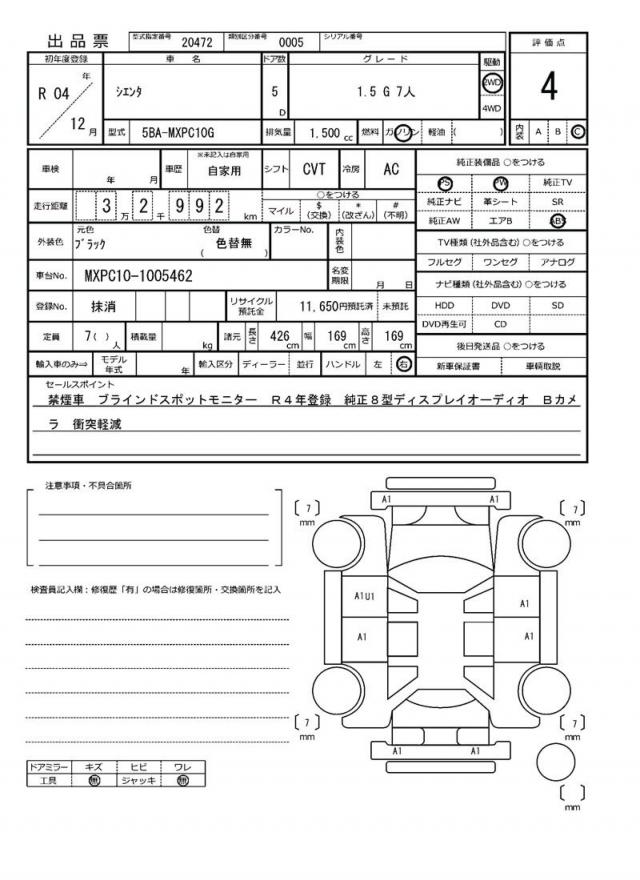 出品票 型式指定番号 20472 類別区分番号 0005 シリアル番号
評価点
4
内装 A B C
初年度登録 車名 ドア数 グレード 駆動
R 04 年 12 月
シエンタ 5 D 1.5 G 7人 2WD 4WD
型式 5BA-MXPC10G 排気量 1.500 cc 燃料 ガソリン 軽油 ( )
車検 年 月 車歴 ※未記入は自家用 自家用 シフト CVT 冷房 AC
走行距離 3 万 2 千 9 9 2 km
○をつける
マイル $ (交換) * (改ざん) # (不明)
外装色 元色 ブラック 色替 ( 色替無 ) カラーNo. 内装色
車台No. MXPC10-1005462 名変期限 月 日
登録No. 抹消 リサイクル預託金 11,650円預託済 未預託
定員 7( )人 積載量 kg 諸元 長さ 426 cm 幅 169 cm 高さ 169 cm
輸入車のみ⇒ モデル年式 年 輸入区分 ディーラー 並行 ハンドル 左 右
純正装備品 ○をつける
PS PW 純正TV
純正ナビ 革シート SR
純正AW エアB ABS
TV種類(社外品含む)○をつける
フルセグ ワンセグ アナログ
ナビ種類(社外品含む)○をつける
HDD DVD SD
DVD再生可 CD
後日発送品 ○をつける
新車保証書 車輌取説
セールスポイント
禁煙車 ブラインドスポットモニター R4年登録 純正8型ディスプレイオーディオ Bカメ
ラ 衝突軽減
注意事項・不具合箇所
検査員記入欄:修復歴「有」の場合は修復箇所・交換箇所を記入
ドアミラー キズ ヒビ ワレ
工具 無 ジャッキ 無
A1 A1
〔 7 〕mm 〔 7 〕mm
A1U1 A1
A1 A1
〔 7 〕mm 〔 7 〕mm
A1 A1
〔 〕mm